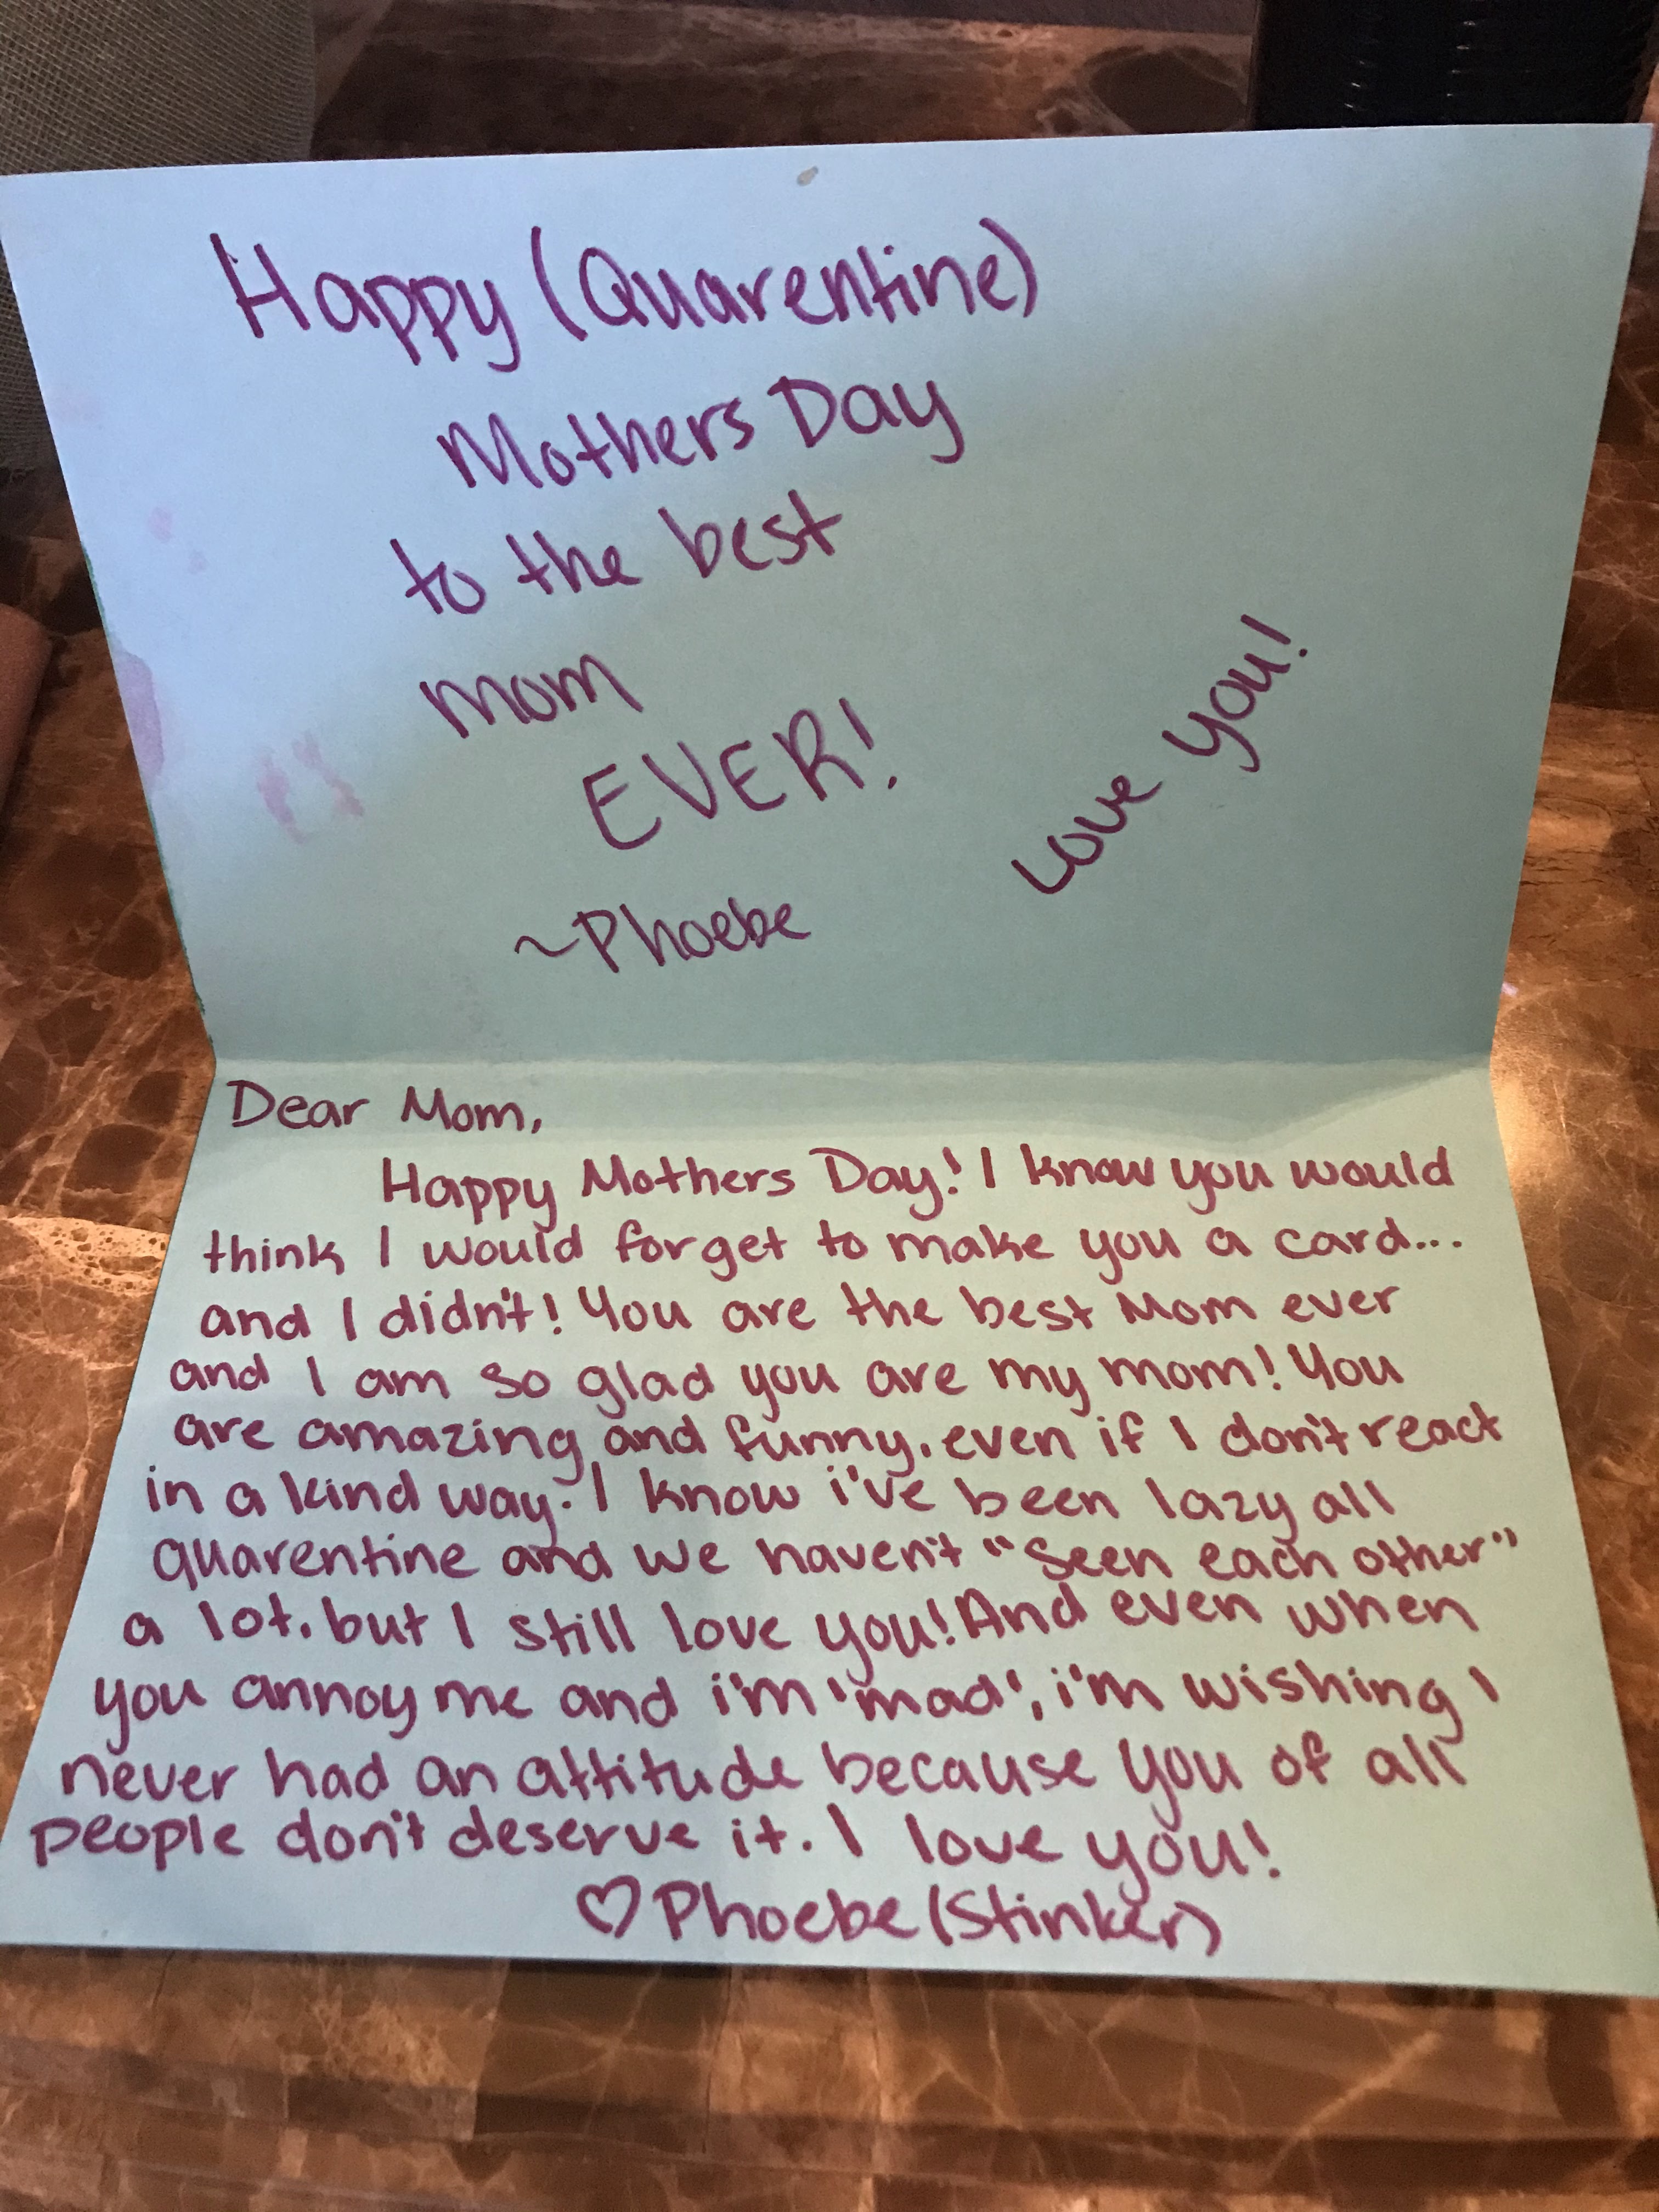 Happy (Quarentine)
Mothers Day
to the best
mom
EVER!
Love You!
~Phoebe
Dear Mom,
Happy Mothers Day! I know you would
think I would forget to make you a card...
and I didn't! You are the best Mom ever
and I am so glad you are my mom! You
are amazing and funny, even if I don't react
in a kind way. I know i've been lazy all
quarentine and we haven't "seen each other"
a lot, but I still love you! And even when
you annoy me and i'm 'mad', i'm wishing I
never had an attitude because you of all
people don't deserve it. I love you!
♡Phoebe (Stinker)